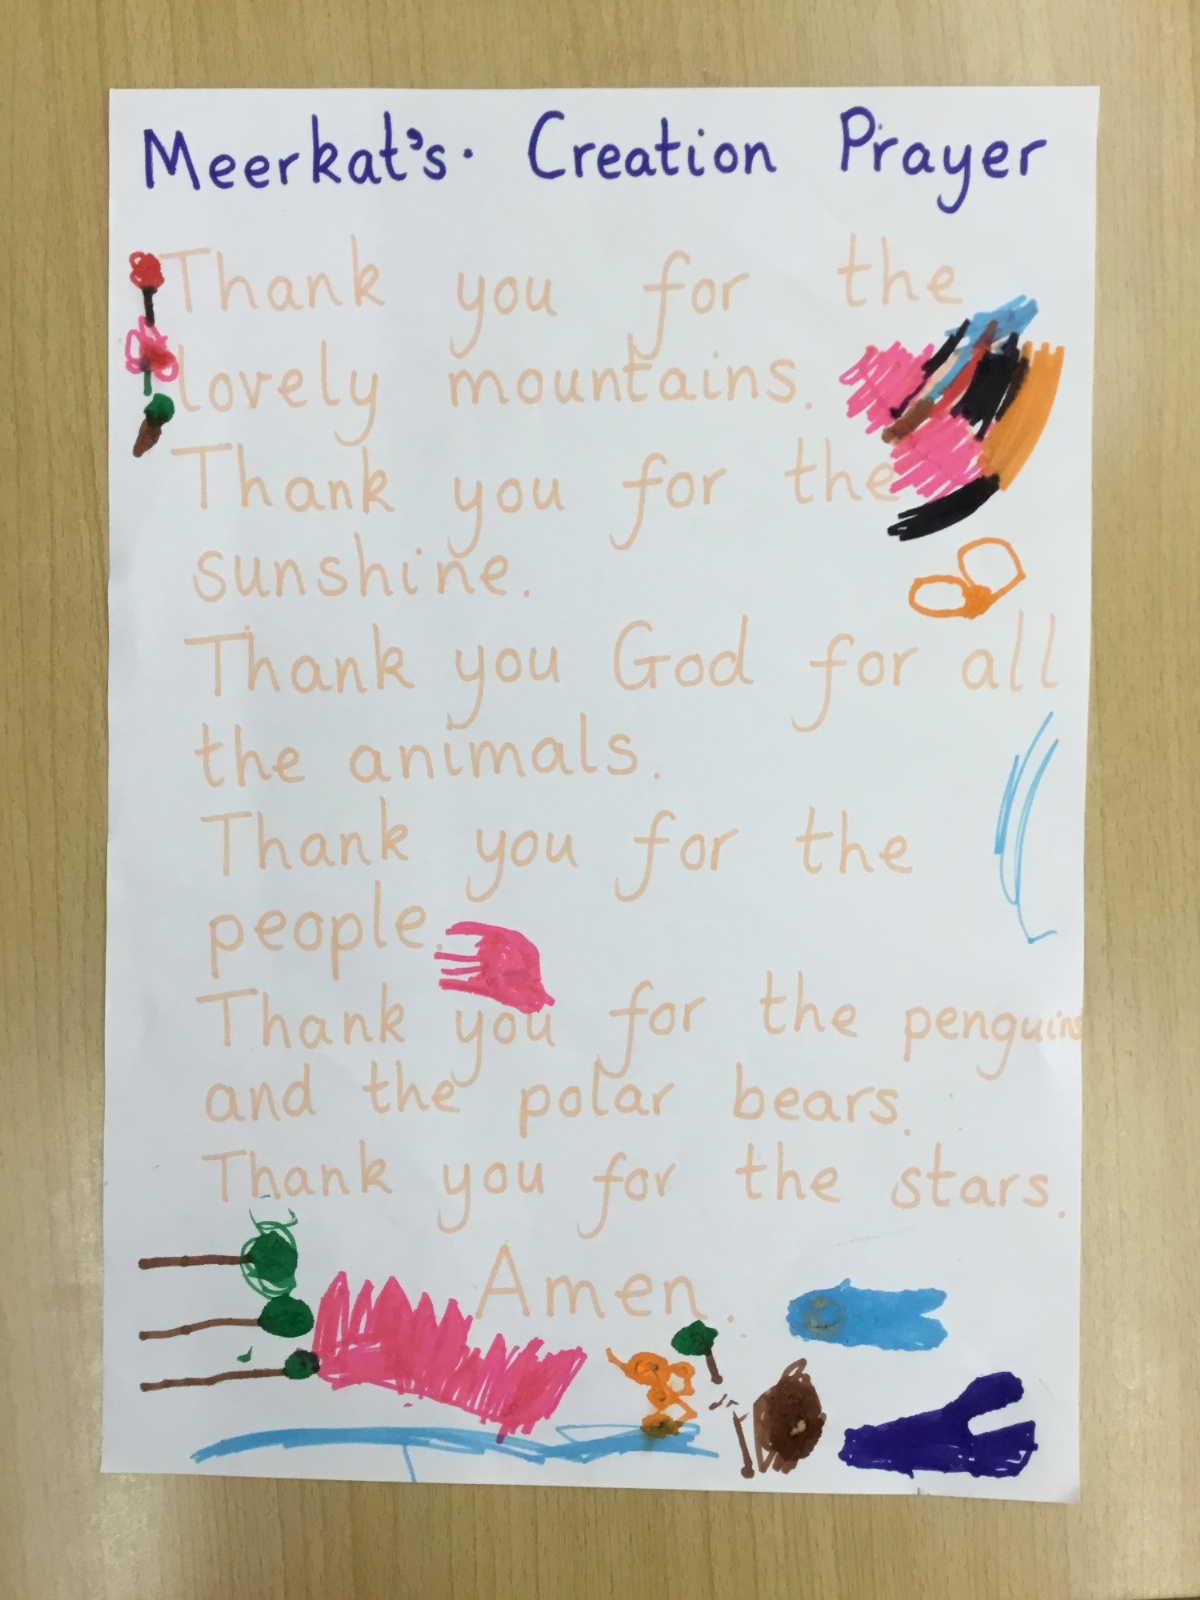 Meerkat's. Creation Prayer
Thank you for the
lovely mountains.
Thank you for the
sunshine.
Thank you God for all
the animals.
Thank you for the
people.
Thank you for the penguins
and the polar bears.
Thank you for the stars.
Amen.